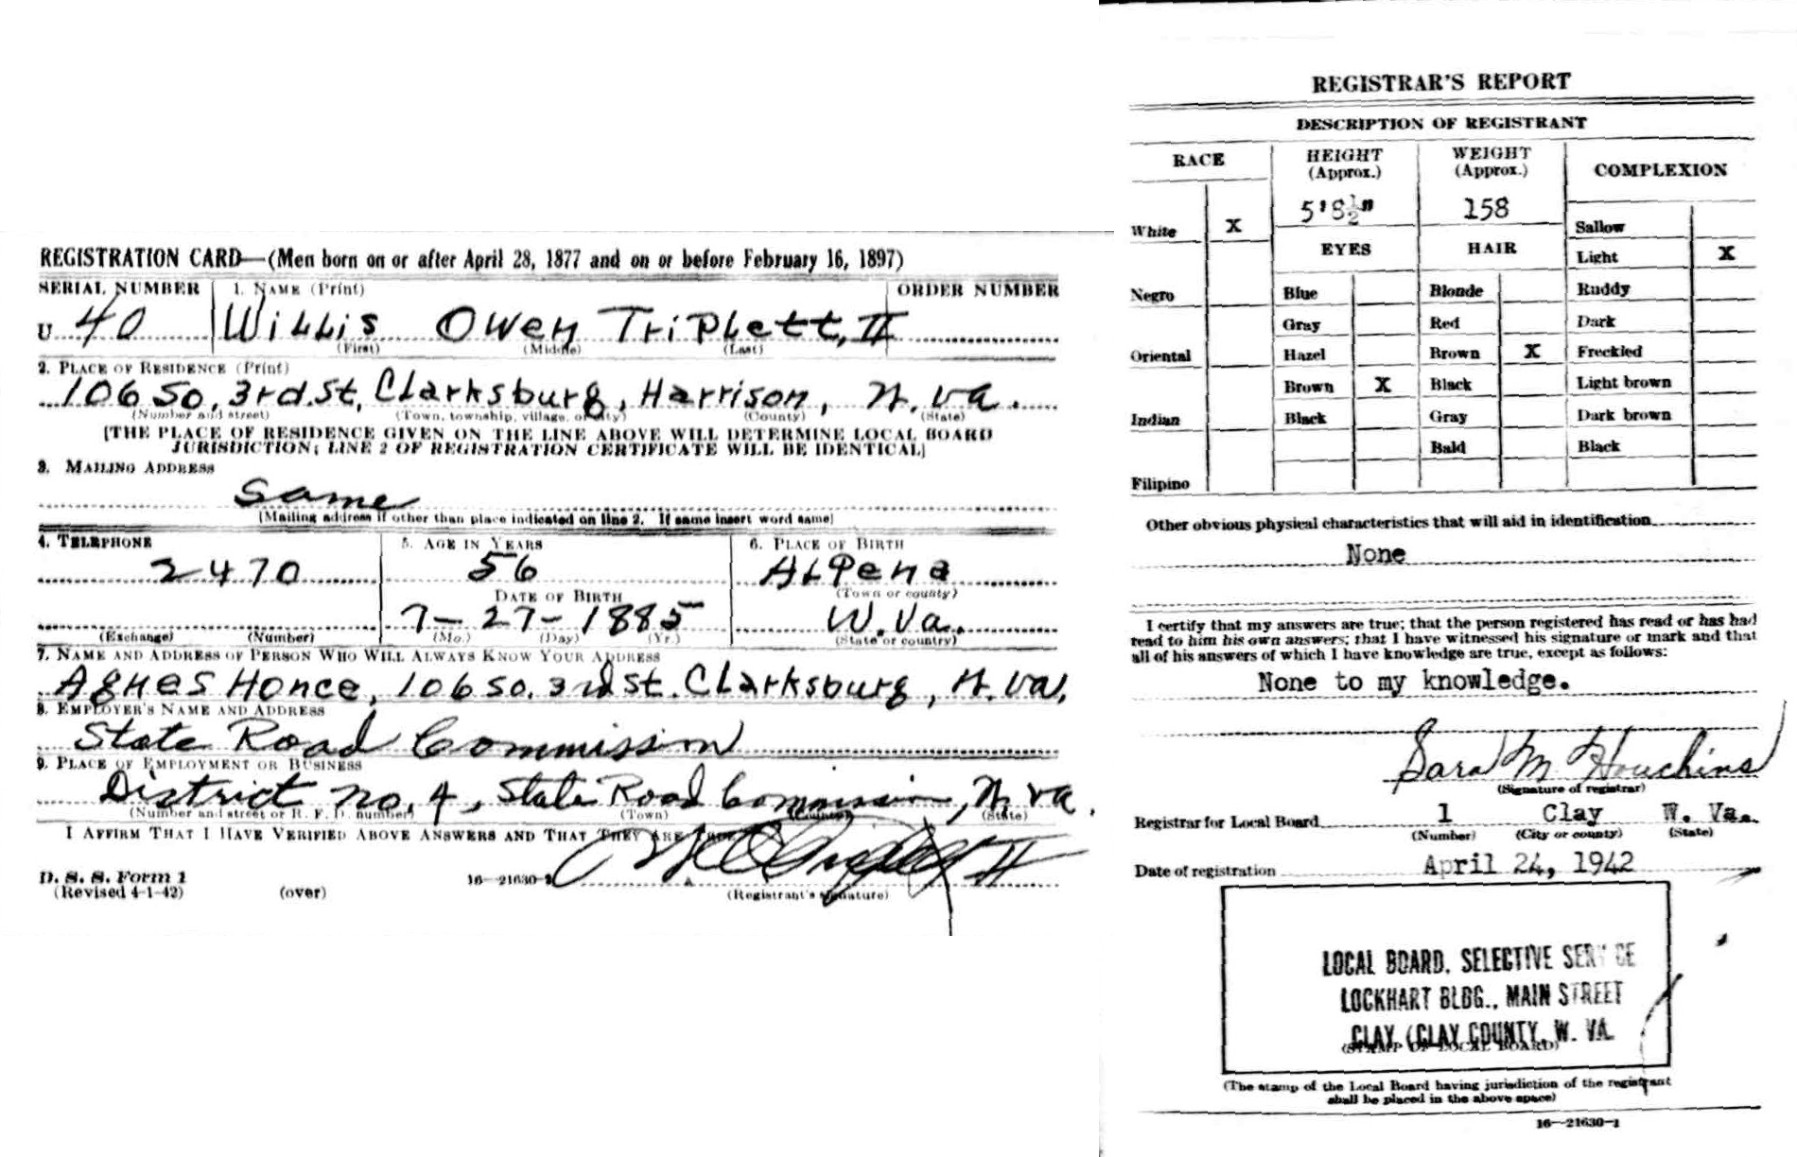 REGISTRATION CARD—(Men born on or after April 28, 1877 and on or before February 16, 1897)
SERIAL NUMBER 1. NAME (Print) ORDER NUMBER
U 40 Willis Owen Triplett, II
(First) (Middle) (Last)
2. PLACE OF RESIDENCE (Print)
106 So. 3rd. St. Clarksburg, Harrison, W. Va.
(Number and street) (Town, township, village, or city) (County) (State)
[THE PLACE OF RESIDENCE GIVEN ON THE LINE ABOVE WILL DETERMINE LOCAL BOARD
JURISDICTION; LINE 2 OF REGISTRATION CERTIFICATE WILL BE IDENTICAL]
3. MAILING ADDRESS
Same
[Mailing address if other than place indicated on line 2. If same insert word same]
4. TELEPHONE 5. AGE IN YEARS 6. PLACE OF BIRTH
2470 56 Alpena
DATE OF BIRTH (Town or county)
7-27-1885 W. Va.
(Exchange) (Number) (Mo.) (Day) (Yr.) (State or country)
7. NAME AND ADDRESS OF PERSON WHO WILL ALWAYS KNOW YOUR ADDRESS
Agnes Honce, 106 So. 3rd St. Clarksburg, W. Va.
8. EMPLOYER'S NAME AND ADDRESS
State Road Commission
9. PLACE OF EMPLOYMENT OR BUSINESS
District No. 4, State Road Commission, W. Va.
(Number and street or R. F. D. number) (Town) (County) (State)
I AFFIRM THAT I HAVE VERIFIED ABOVE ANSWERS AND THAT THEY ARE TRUE.
W O Triplett II
D. S. S. Form 1
(Revised 4-1-42) (over) 16—21630-1 (Registrant's signature)
REGISTRAR'S REPORT
DESCRIPTION OF REGISTRANT
RACE HEIGHT (Approx.) WEIGHT (Approx.) COMPLEXION
5'8½" 158
White X Sallow
EYES HAIR Light X
Negro Blue Blonde Ruddy
Gray Red Dark
Oriental Hazel Brown X Freckled
Brown X Black Light brown
Indian Black Gray Dark brown
Bald Black
Filipino
Other obvious physical characteristics that will aid in identification
None
I certify that my answers are true; that the person registered has read or has had
read to him his own answers; that I have witnessed his signature or mark and that
all of his answers of which I have knowledge are true, except as follows:
None to my knowledge.
Sara M Houchins
(Signature of registrar)
Registrar for Local Board 1 Clay W. Va.
(Number) (City or county) (State)
Date of registration April 24, 1942
LOCAL BOARD, SELECTIVE SERVICE
LOCKHART BLDG., MAIN STREET
CLAY (CLAY COUNTY, W. VA.
(STAMP OF LOCAL BOARD)
(The stamp of the Local Board having jurisdiction of the registrant
shall be placed in the above space)
16—21630-1